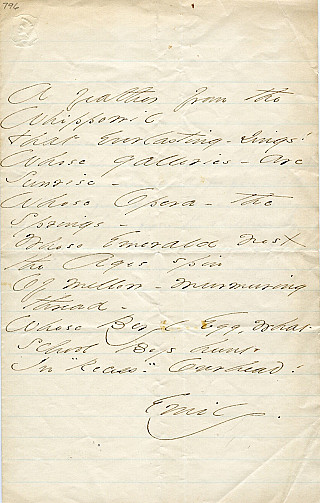 796
A feather from the
Whippowil
that Everlasting - sings!
Whose galleries - are
Sunrise -
Whose Opera - the
Springs -
Whose Emerald Nest
the Ages spin
Of mellow - murmuring
thread -
Whose Beryl Egg, what
School Boys hunt
In "Recess" - Overhead!
Emily.